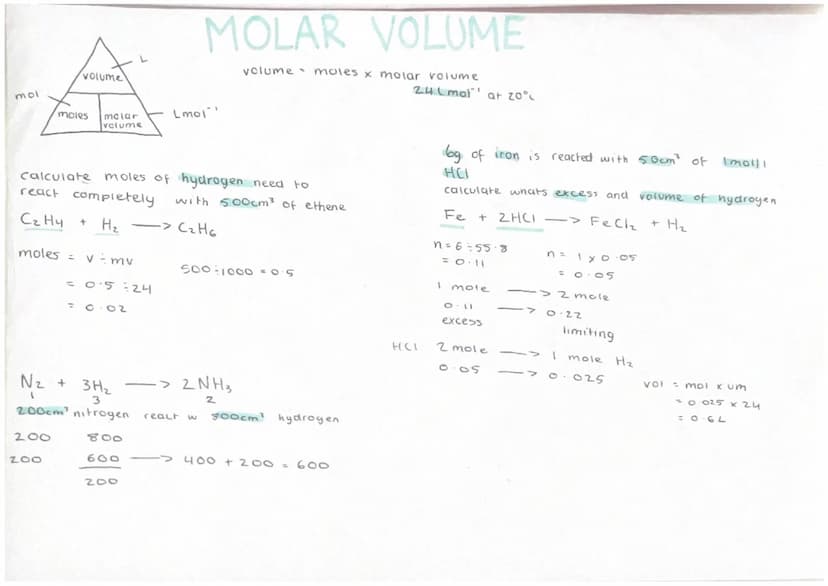 MOLAR VOLUME
volume = moles x molar volume
24Lmol⁻¹ at 20°c
L
volume
mol
moles
molar
volume
Lmol⁻¹
calculate moles of hydrogen need to
react completely with 500cm³ of ethene
C₂H₄ + H₂ —> C₂H₆
moles = v ÷ mv
500÷1000 = 0.5
= 0.5 ÷ 24
= 0.02
N₂ + 3H₂ —> 2NH₃
1 3 2
200cm³ nitrogen react w 800cm³ hydrogen
200 800
200 600 —> 400 + 200 = 600
200
6g of iron is reacted with 50cm³ of 1mol/l
HCl
calculate whats excess and volume of hydrogen
Fe + 2HCl —> FeCl₂ + H₂
n = 6 ÷ 55.8
= 0.11
n = 1 x 0.05
= 0.05
1 mole —> 2 mole
0.11 —> 0.22
excess limiting
HCl 2 mole —> 1 mole H₂
0.05 —> 0.025
vol = mol x vm
= 0.025 x 24
= 0.6L